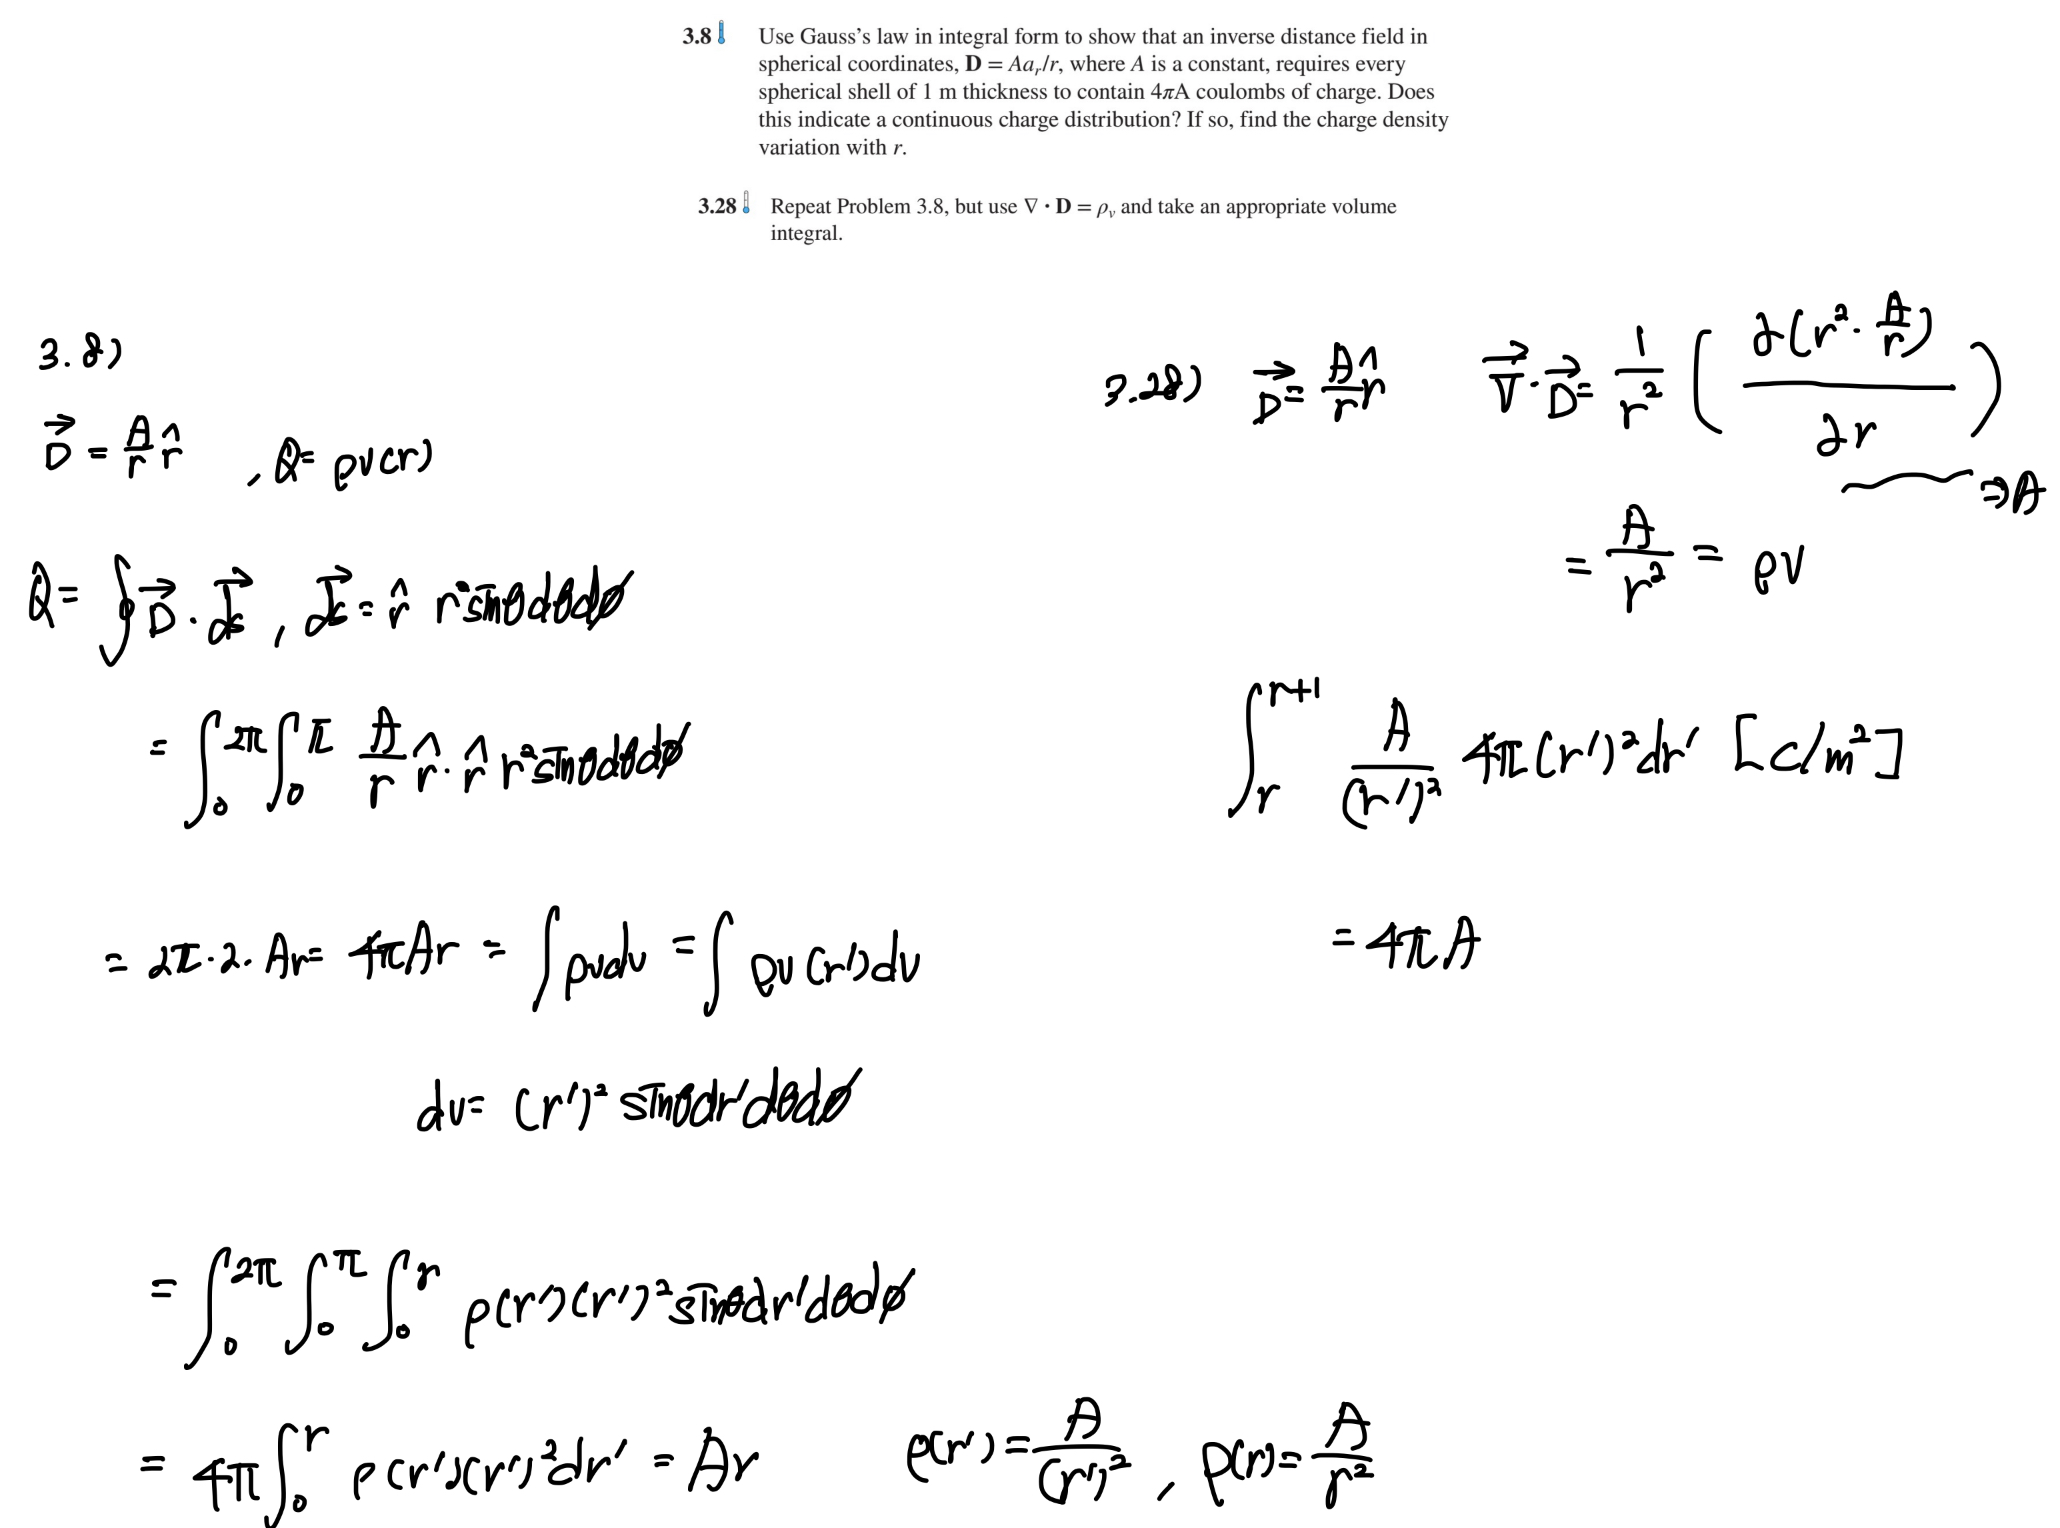 3.8 Use Gauss's law in integral form to show that an inverse distance field in
spherical coordinates, D = Aaᵣ/r, where A is a constant, requires every
spherical shell of 1 m thickness to contain 4πA coulombs of charge. Does
this indicate a continuous charge distribution? If so, find the charge density
variation with r.
3.28 Repeat Problem 3.8, but use ∇ · D = ρᵥ and take an appropriate volume
integral.
3.8)
D⃗ = A/r r̂ , Q = ρv(r)
Q = ∮ D⃗ · ds⃗ , ds⃗ = r̂ r² sinθdθdφ
= ∫₀^2π ∫₀^π A/r r̂ · r̂ r² sinθdθdφ
= 2π · 2 · Ar = 4πAr = ∫ρvdv = ∫ρv(r')dv
dv = (r')² sinθdr'dθdφ
= ∫₀^2π ∫₀^π ∫₀^r ρ(r')(r')² sinθdr'dθdφ
= 4π ∫₀^r ρ(r')(r')² dr' = Ar
ρ(r') = A/(r')² , ρ(r) = A/r²
3.28) D⃗ = A/r r̂ ∇⃗ · D⃗ = 1/r² ( ∂(r² · A/r) / ∂r )
⇒A
= A/r² = ρv
∫ᵣ^r+1 A/(r')² 4π(r')² dr' [c/m²]
= 4πA